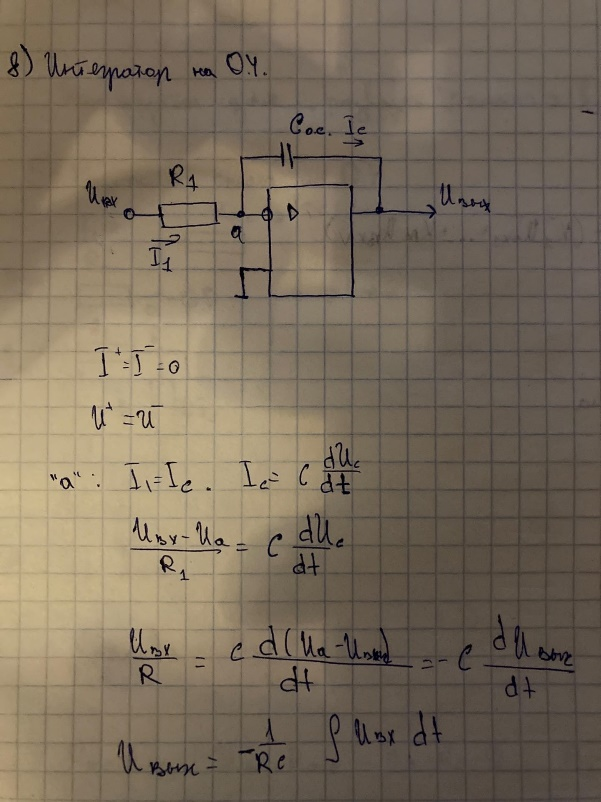 8) Интегратор на О.У.
Cос. Ic
R1
Uвх
Uвых
a
I1
I⁺=I⁻=0
U⁺=U⁻
"a": I1=Ic. Ic= C dUc/dt
(Uвх-Ua)/R1 = C dUc/dt
Uвх/R = C d(Ua-Uвых)/dt = -C dUвых/dt
Uвых = -1/RC ∫ Uвх dt